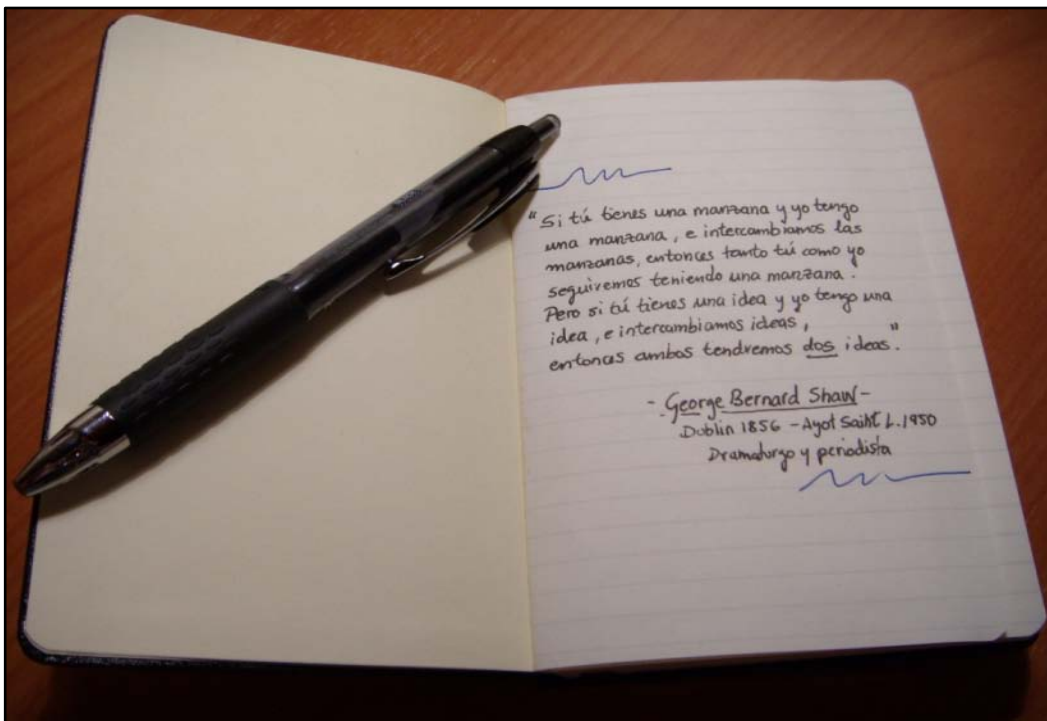 "Si tú tienes una manzana y yo tengo
una manzana, e intercambiamos las
manzanas, entonces tanto tú como yo
seguiremos teniendo una manzana.
Pero si tú tienes una idea y yo tengo una
idea, e intercambiamos ideas,
entonces ambos tendremos dos ideas."
- George Bernard Shaw -
Dublin 1856 - Ayot Saint L. 1950
Dramaturgo y periodista